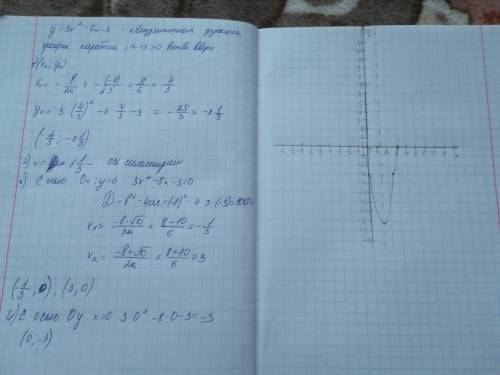 y=3x²-8x-3 - квадратичная функция
график парабола, a=3>0 ветви вверх
1) (x₀; y₀)
x₀ = -b/2a = -(-8)/2·3 = 8/6 = 4/3
y₀ = 3·(4/3)² - 8·4/3 - 3 = -25/3 = -8 1/3
(4/3; -8 1/3)
2) x= 1 1/3 - ось симметрии
3) С осью Ox: y=0 3x²-8x-3=0
D = b²-4ac=(-8)²-4·3·(-3)=100
x₁ = (-b-√D)/2a = (8-10)/6 = -1/3
x₂ = (-b+√D)/2a = (8+10)/6 = 3
(-1/3, 0), (3, 0)
4) С осью Oy x=0 3·0²-8·0-3=-3
(0, -3)